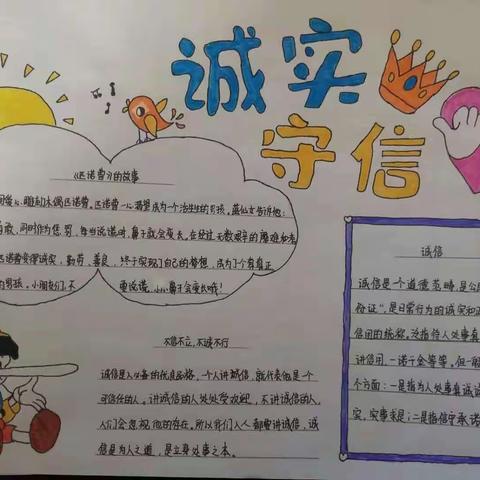 诚实
守信
《匹诺曹》的故事
雕刻木偶匹诺曹。匹诺曹一心希望成为一个活生生的男孩，蓝仙女告诉他：
同时作为惩罚，每当说谎时，鼻子就会变长。在经过无数艰辛的磨难和考
匹诺曹变得诚实，勤劳、善良，终于实现了自己的梦想，成为了个真真正
的男孩。小朋友们，不要说谎，小心鼻子会变长哦！
不信不立，不诚不行
诚信是人必备的优良品格，一个人讲诚信，就代表他是一个
可信任的人。讲诚信的人处处受欢迎，不讲诚信的人，
人们会忽视他的存在。所以我们人人都要讲诚信，诚
信是为人之道，是立身处事之本。
诚信
诚信是一个道德范畴，是公民
份证”，是日常行为的诚实和正
信用的统称。泛指待人处事真
讲信用，一诺千金等等。但一般
个方面：一是指为人处事真诚
实，实事求是；二是指信守承诺